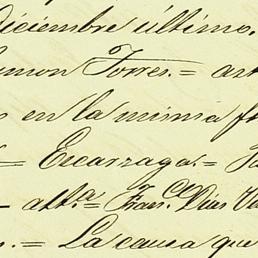 Diciembre último.
Ramon Torres. = art
s en la misma f
= Escarzaga. =
- alt.ta Fran.co Dias Va
s. = La causa que